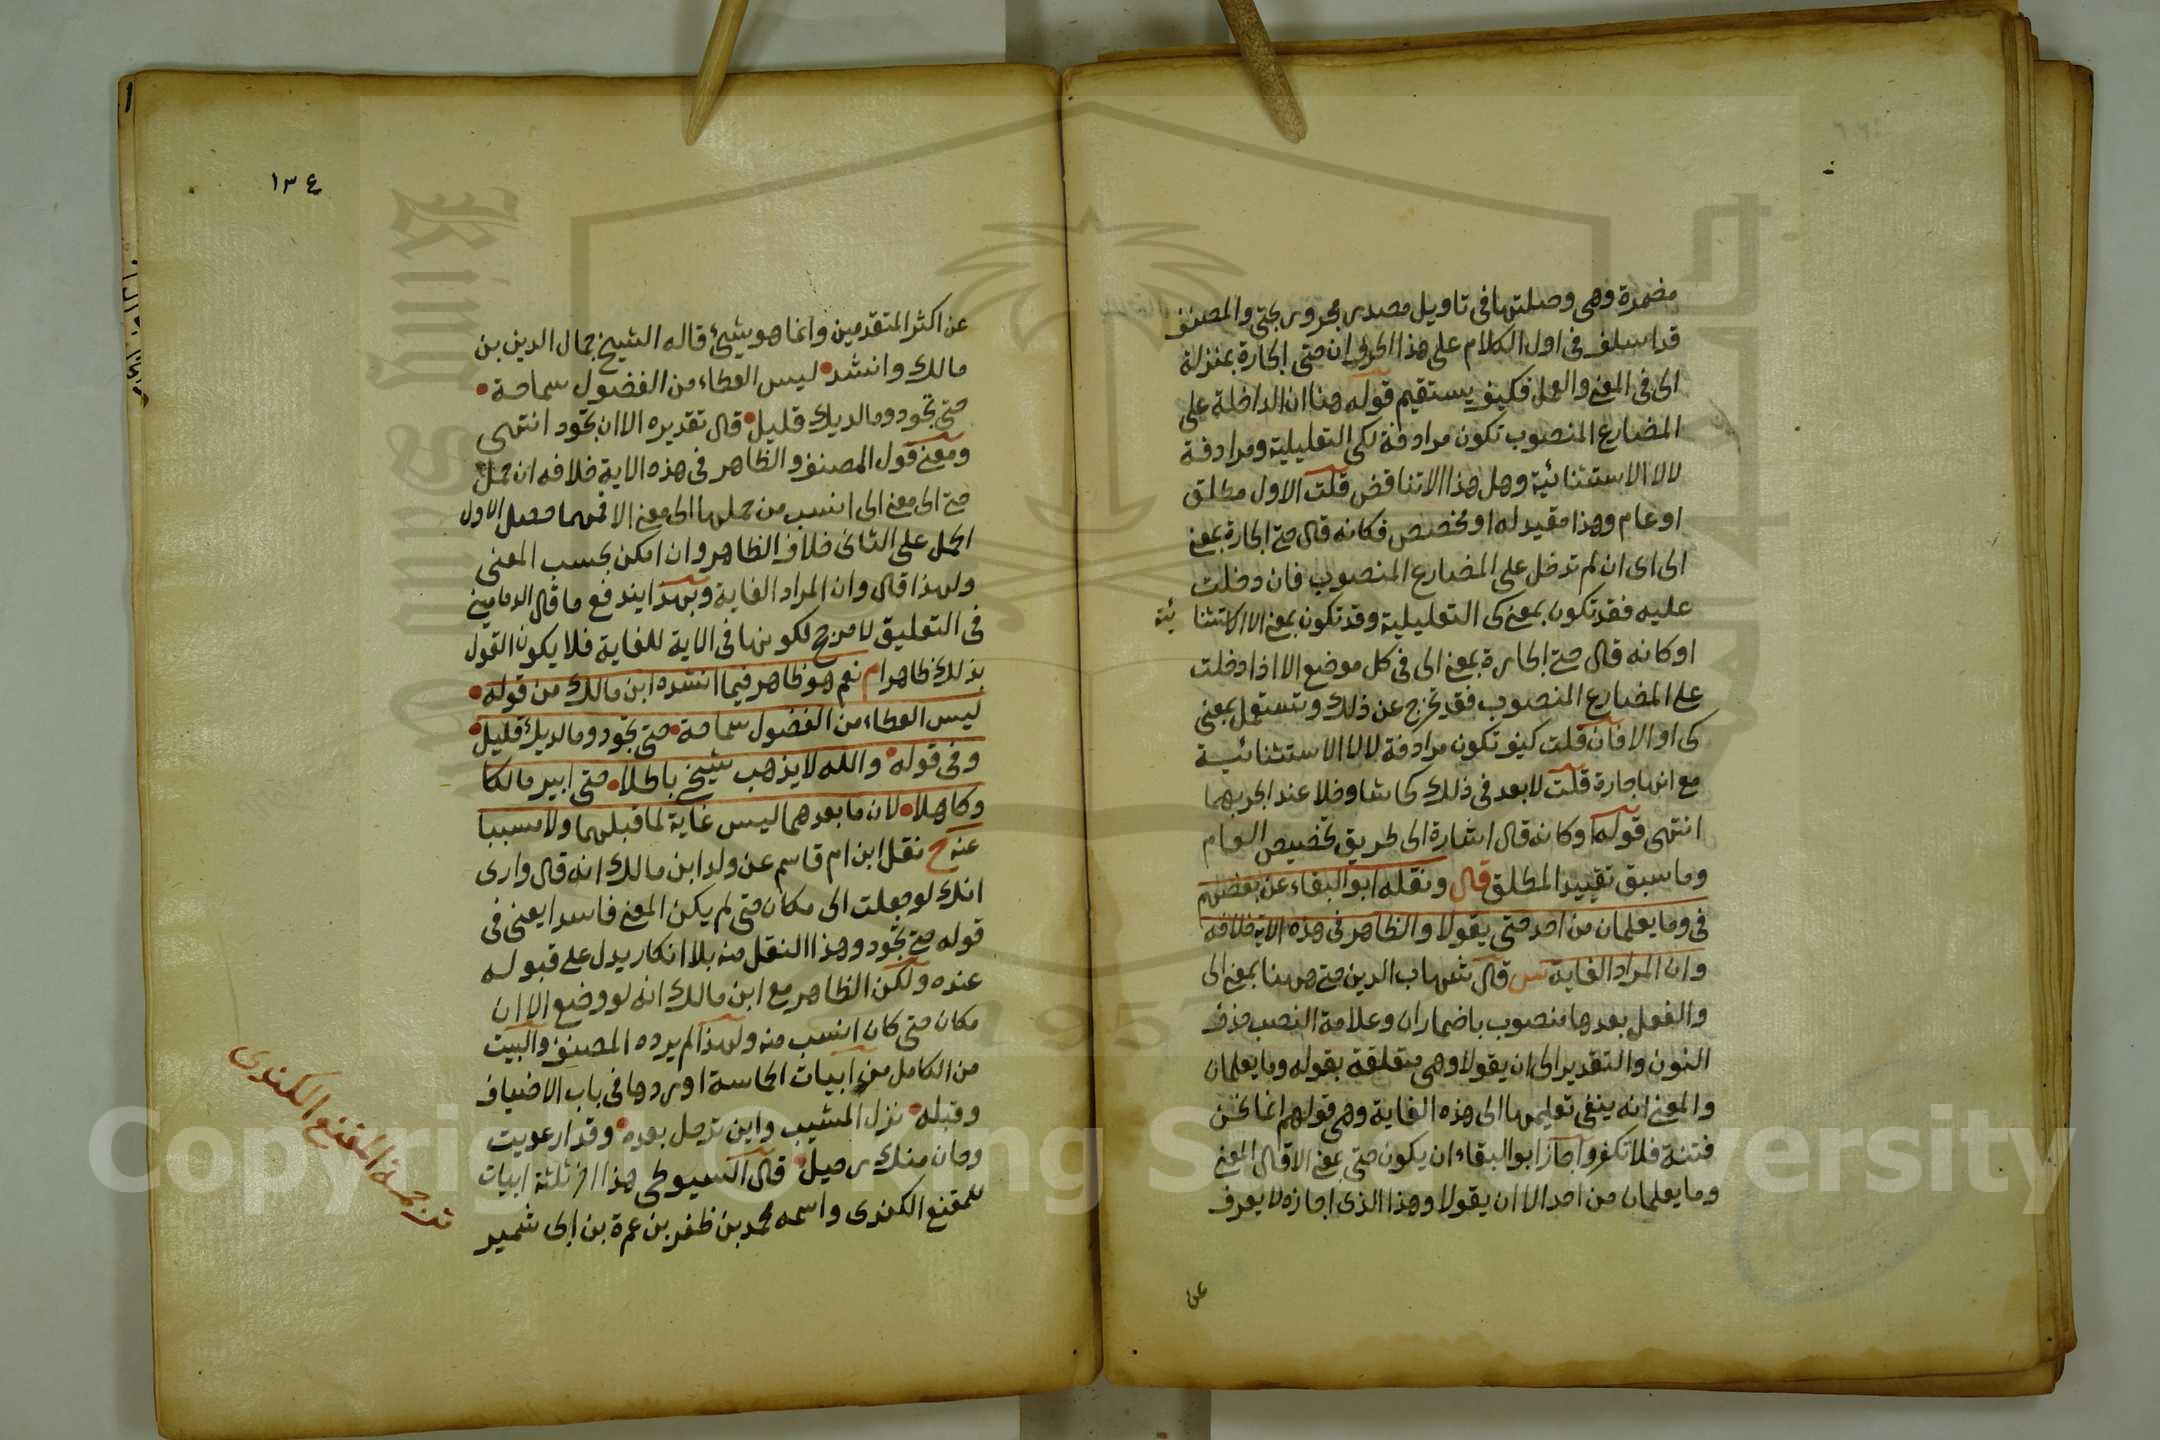 مضمرة وهي وصلتها في تاويل مصدر مجرور بحتى والمصنف
قد اسلف في اول الكلام على هذا الحرف ان حتى الجارة بمنزلة
الى في المعنى والعمل فكيف يستقيم قوله هنا ان الداخلة على
المضارع المنصوب تكون مرادفة لكي التعليلية ومرادفة
لالا الاستثنائية وهل هذا الا تناقض قلت الاول مطلق
او عام وهذا مقيد له او مخصص فكانه قال حتى الجارة بمعنى
الى اى ان لم تدخل على المضارع المنصوب فان دخلت
عليه فقد تكون بمعنى كى التعليلية وقد تكون بمعنى الا الاستثنا ئية
او كانه قال حتى الجارة بمعنى الى في كل موضع الا اذا دخلت
على المضارع المنصوب فقد تخرج عن ذلك وتستعمل بمعنى
كى او الا فان قلت كيف تكون مرادفة لالا الاستثنائية
مع انها جارة قلت لا بعد في ذلك كحاشا وخلا عند الجر بهما
انتهى قوله او كانه قال اشارة الى طريق تخصيص العام
وما سبق تقييد المطلق قال ونقله ابو البقاء عن بعضهم
في وما يعلمان من احد حتى يقولا والظاهر في هذه الاية خلافه
وان المراد الغاية س قال شهاب الدين حتى هاهنا بمعنى الى
والفعل بعدها منصوب باضمار ان وعلامة النصب حذف
النون والتقدير الى ان يقولا وهى متعلقة بقوله وما يعلمان
والمعنى انه ينفى تعليمهما الى هذه الغاية وهى قولهم انما نحن
فتنة فلا تكفر واجاز ابو البقاء ان يكون حتى بمعنى الا قال المعنى
وما يعلمان من احد الا ان يقولا وهذا الذى اجازه لا يعرف
عن
١٣٤
عن اكثر المتقدمين وانما هو شيئ قاله الشيخ جمال الدين بن
مالك وانشد ليس العطاء من الفضول سماحة
حتى تجود وما لديك قليل قال تقديره الا ان تجود انتهى
ومعنى قول المصنف والظاهر في هذه الاية خلافه ان حمل
حتى الى معنى الى انسب من حملها الى معنى الا فمهما حصل الاول
الحمل على الثانى خلاف الظاهر وان امكن بحسب المعنى
ولهذا قال وان المراد الغاية وبهذا يندفع ما قال الدمامينى
في التعليق لا مرجح لكونها في الاية للغاية فلا يكون القول
بذلك ظاهرا م نعم هو ظاهر فيما انشده ابن مالك من قوله
ليس العطاء من الفضول سماحة حتى تجود وما لديك قليل
وفى قوله والله لا يذهب شيخى باطلا حتى ابير مالكا
وكاهلا لان ما بعدهما ليس غاية لما قبلهما ولا مسببا
عنه ح نقل ابن ام قاسم عن ولد ابن مالك انه قال وارى
انك لو جعلت الى مكان حتى لم يكن المعنى فاسدا يعنى في
قوله حتى تجود وهذا النقل منه بلا انكار يدل على قبوله
عنده ولكن الظاهر مع ابن مالك انه لو وضع الا ان
مكان حتى كان انسب منه ولهذا لم يرده المصنف والبيت
من الكامل من ابيات الحماسة اوردها في باب الاضياف
وقبله نزل المشيب واين ترحل بعده وقد ارعويت
وحان منك رحيل قال السيوطى هذا اخر ثلثة ابيات
للمقنع الكندى واسمه محمد بن ظفر بن عمرة بن ابى شمير
ترجمة المقنع الكندى
King Saud University
1957
Copyright © King Saud University